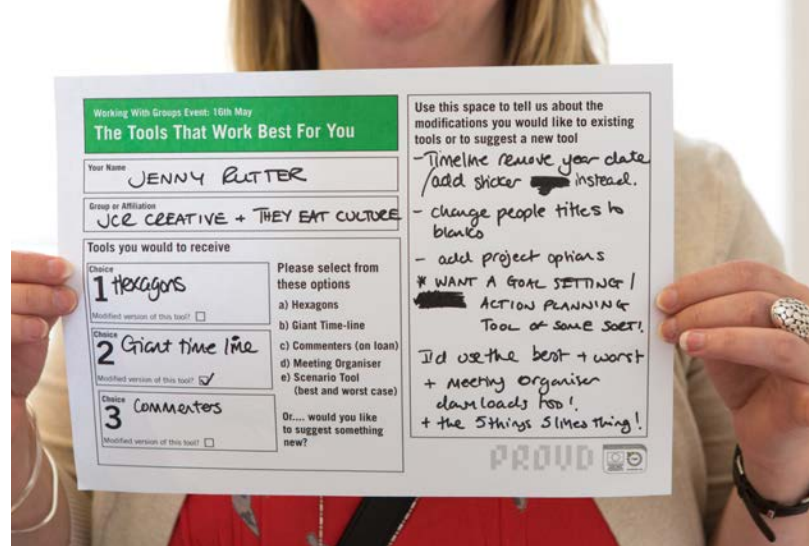 Working With Groups Event: 16th May
The Tools That Work Best For You
Your Name
JENNY RUTTER
Group or Affiliation
JCR CREATIVE + THEY EAT CULTURE
Tools you would to receive
Choice
1 Hexagons
Modified version of this tool?
Choice
2 Giant time line
Modified version of this tool?
Choice
3 Commenters
Modified version of this tool?
Please select from
these options
a) Hexagons
b) Giant Time-line
c) Commenters (on loan)
d) Meeting Organiser
e) Scenario Tool
(best and worst case)
Or.... would you like
to suggest something
new?
Use this space to tell us about the
modifications you would like to existing
tools or to suggest a new tool
- Timeline remove year date
/add sticker instead.
- change people titles to
blanks
- add project options
* WANT A GOAL SETTING /
ACTION PLANNING
TOOL OF SOME SORT!
I'd use the best + worst
+ meeting organiser
downloads too!
+ the 5 things 5 lines thing!
PROUD